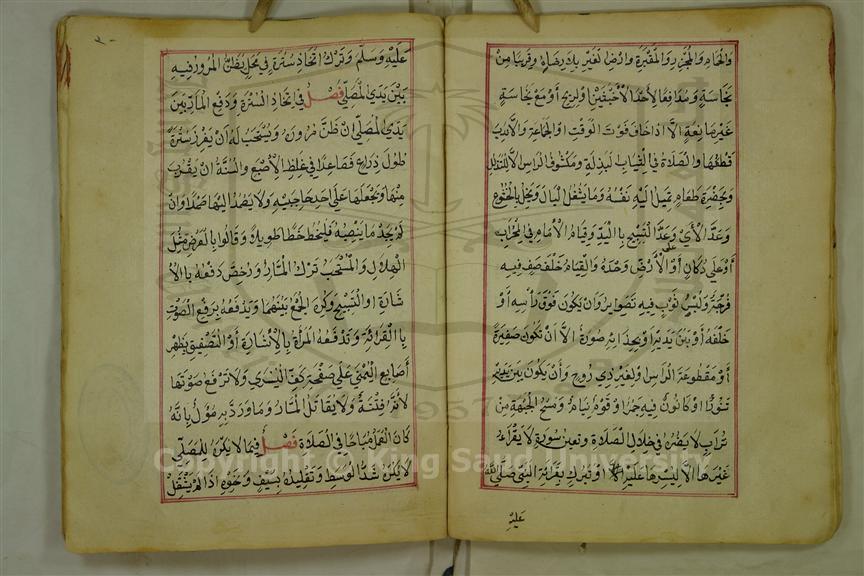 والحمام والمجزرة والمقبرة وارض الغير بلا رضاه وقريبا من
نجاسة ومدافعا لاحد الاخبثين او لريح او مع نجاسة
غير مانعة الا اذا خاف فوت الوقت او الجماعة والا ندب
قطعها والصلاة في ثياب البذلة ومكشوف الراس لا للتذلل
وبحضرة طعام تميل اليه نفسه وما يشغل البال ويخل بالخشوع
وعد الآي وعد التسبيح باليد وقيام الامام في المحراب
او على دكان او الارض وحده والقيام خلف صف فيه
فرجة ولبس ثوب فيه تصاوير وان يكون فوق راسه او
خلفه او بين يديه او بحذائه صورة الا ان تكون صغيرة
او مقطوعة الراس او لغير ذي روح وان يكون بين يديه
تنور او كانون فيه جمر او قوم نيام ومسح الجبهة من
تراب لا يضره في خلال الصلاة وتعين سورة لا يقراء
غيرها الا ليسر عليه او تبرك بقرائة النبي صلى الله
عليه
عليه وسلم وترك اتخاذ سترة في محل يظن المرور فيه
بين يدي المصلي فصل في اتخاذ السترة ودفع المار بين
يدي المصلي ان ظن مروره ويستحب له ان يغرز سترة
طول ذراع فصاعدا في غلظ الاصبع والسنة ان يقرب
منها ويجعلها على احد حاجبيه ولا يصمد اليها صمدا وان
لم يجد ما ينصبه فليخط خطا طويلا وقالوا بالعرض مثل
الهلال والمستحب ترك المار ورخص دفعه بالا
شارة او التسبيح وكره الجمع بينهما ويدفعه برفع الصوت
بالقرائة وتدفعه المراة بالاشارة او التصفيق بظهر
اصابع اليمنى على صفحة كف اليسرى ولا ترفع صوتها
لانه فتنة ولا يقاتل المار وما ورد به مؤول بانه
كان العمل مباحا في الصلاة فصل فيما لا يكره للمصلي
لا يكره شد الوسط وتقليده بسيف ونحوه اذا لم يشتغل
Copyright © King Saud University
1957